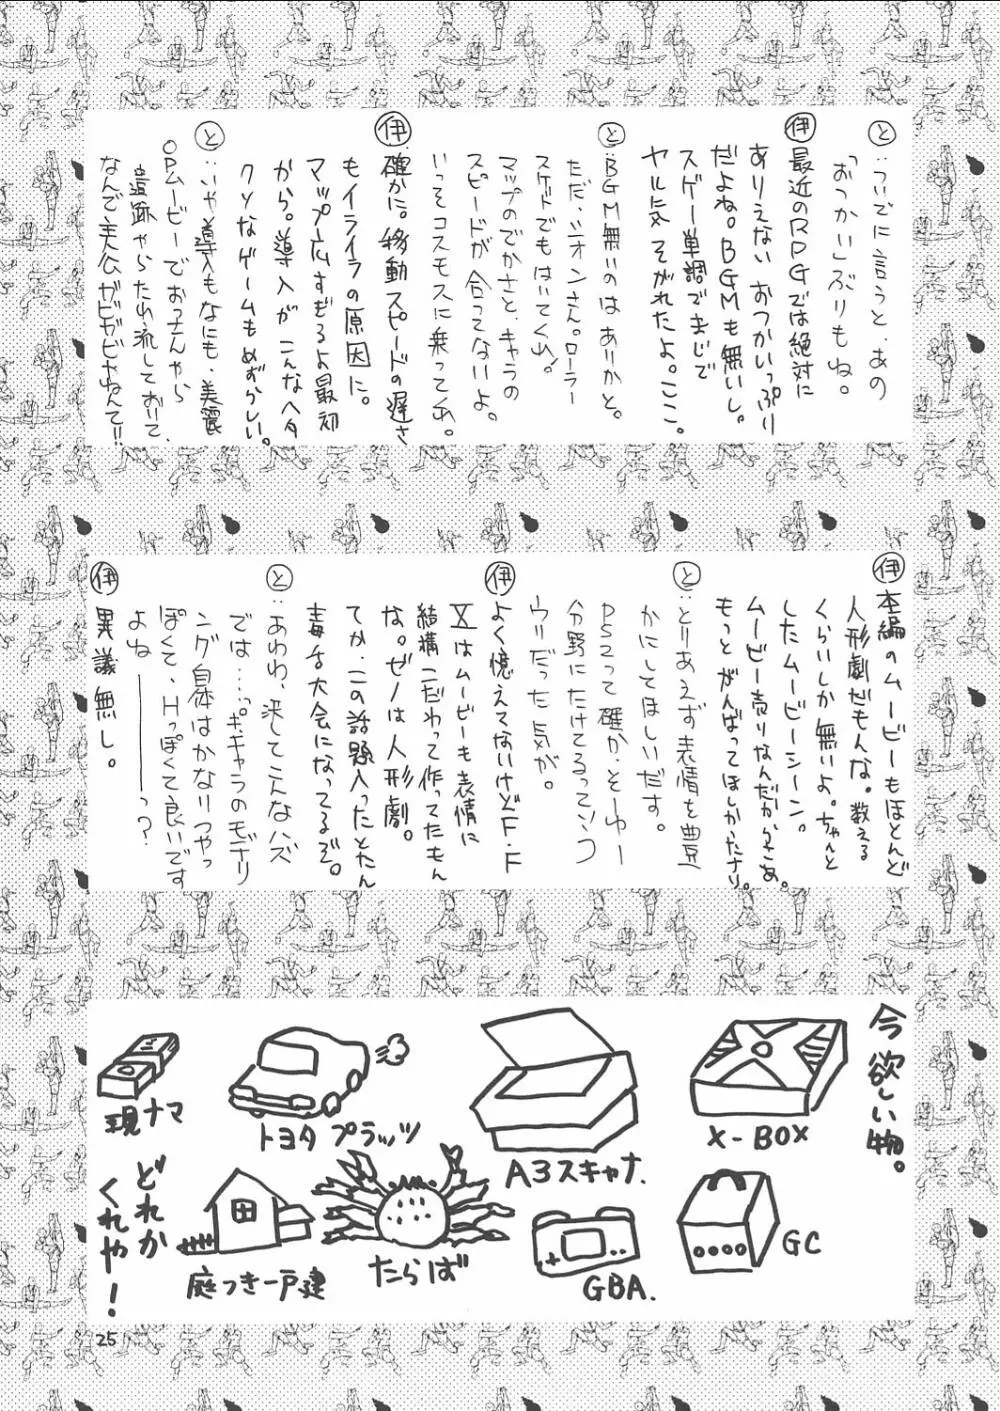 と：ついでに言うと、あの
「おつかい」ぶりもね。
伊 最近のRPGでは絶対に
ありえないおつかいっぷり
だよね。BGMも無いし。
スゲー単調でまじで
ヤル気そがれたよ。ここ。
と：BGM無いのはありかと。
ただ、シオンさん。ローラー
スケートでもはいてくれ！
マップのでかさと、キャラの
スピードが合ってないよ。
いってコスモスに乗ってくれ。
伊 確かに。移動スピードの遅さ
もイライラの原因に。
マップ広すぎるよ最初
から。導入がこんなヘタ
クソなゲームもめずらしい。
と：いや導入もなにも、美麗
OPムービーでおっさんやら
遺跡やらたれ流しておいて、
なんで美公がビビビやねんて!!
伊 本編のムービーもほとんど
人形劇だもんな。数える
くらいしか無いよ。ちゃんと
したムービーシーン。
ムービー売りなんだからさぁ。
もっとがんばってほしかったナリ。
と：とりあえず表情を豊
かにしてほしいだす。
PS2って確か、そーゆー
分野にたけてるってソウ
ウリだった気が。
伊 よく憶えてないけどF・F
Xはムービーも表情に
結構こだわって作ってたもん
な。ゼノは人形劇。
てか、この話題入ったとたん
毒舌大会になってるぞ。
と：あわわ、決してこんなハズ
では…。キャラのモデリ
ング自体はかなりつやっ
ぽくて、Hっぽくて良いです
よね――っ？
伊 異議無し。
今欲しい物。
X-BOX
A3スキャナ.
トヨタプラッツ
現ナマ
GC
GBA.
たらば
庭つき一戸建
どれか
くれや！
25